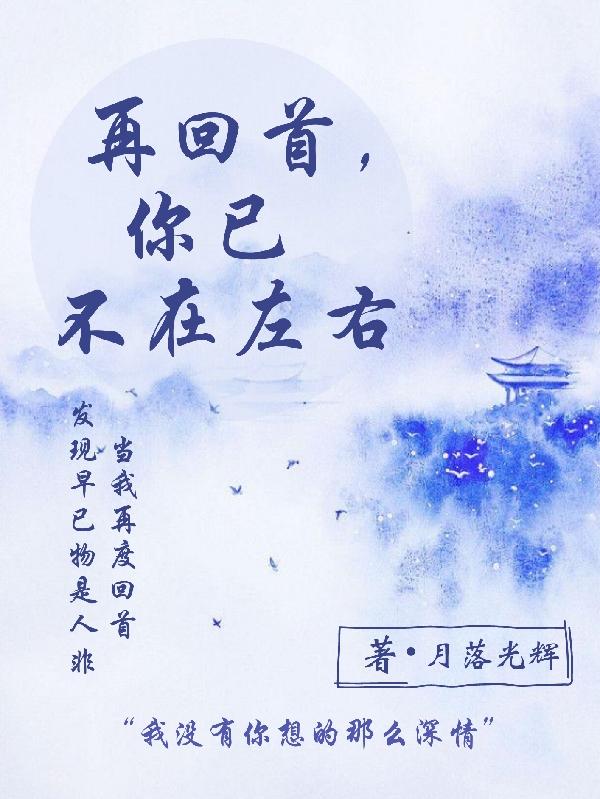 再回首，
你已
不在左右
当我再度回首
发现早已物是人非
著·月落光辉
“我没有你想的那么深情”